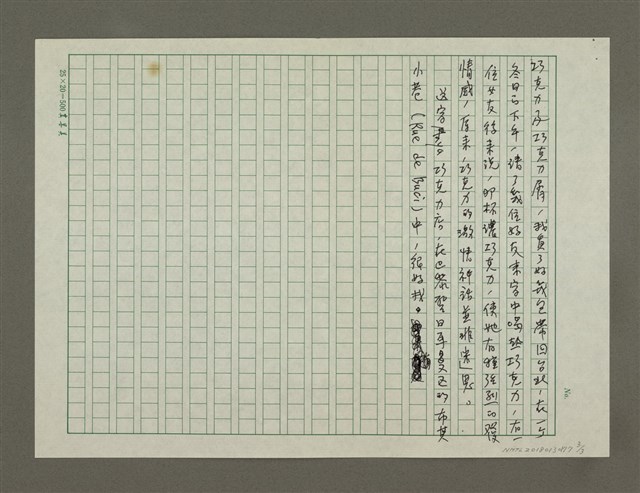 巧克力及巧克力屑，我買了好幾包帶回台北，在一個
冬日的下午，請了幾位好友來家中喝熱巧克力，有一
位女友後來說，那杯濃巧克力，使她有種強烈的
情感，原來，巧克力的激情神話並非虛
這家 巧克力店，在巴黎聖日耳曼區的布其
小巷（Rue de Buci）中，很好找。
25×20=500
No.